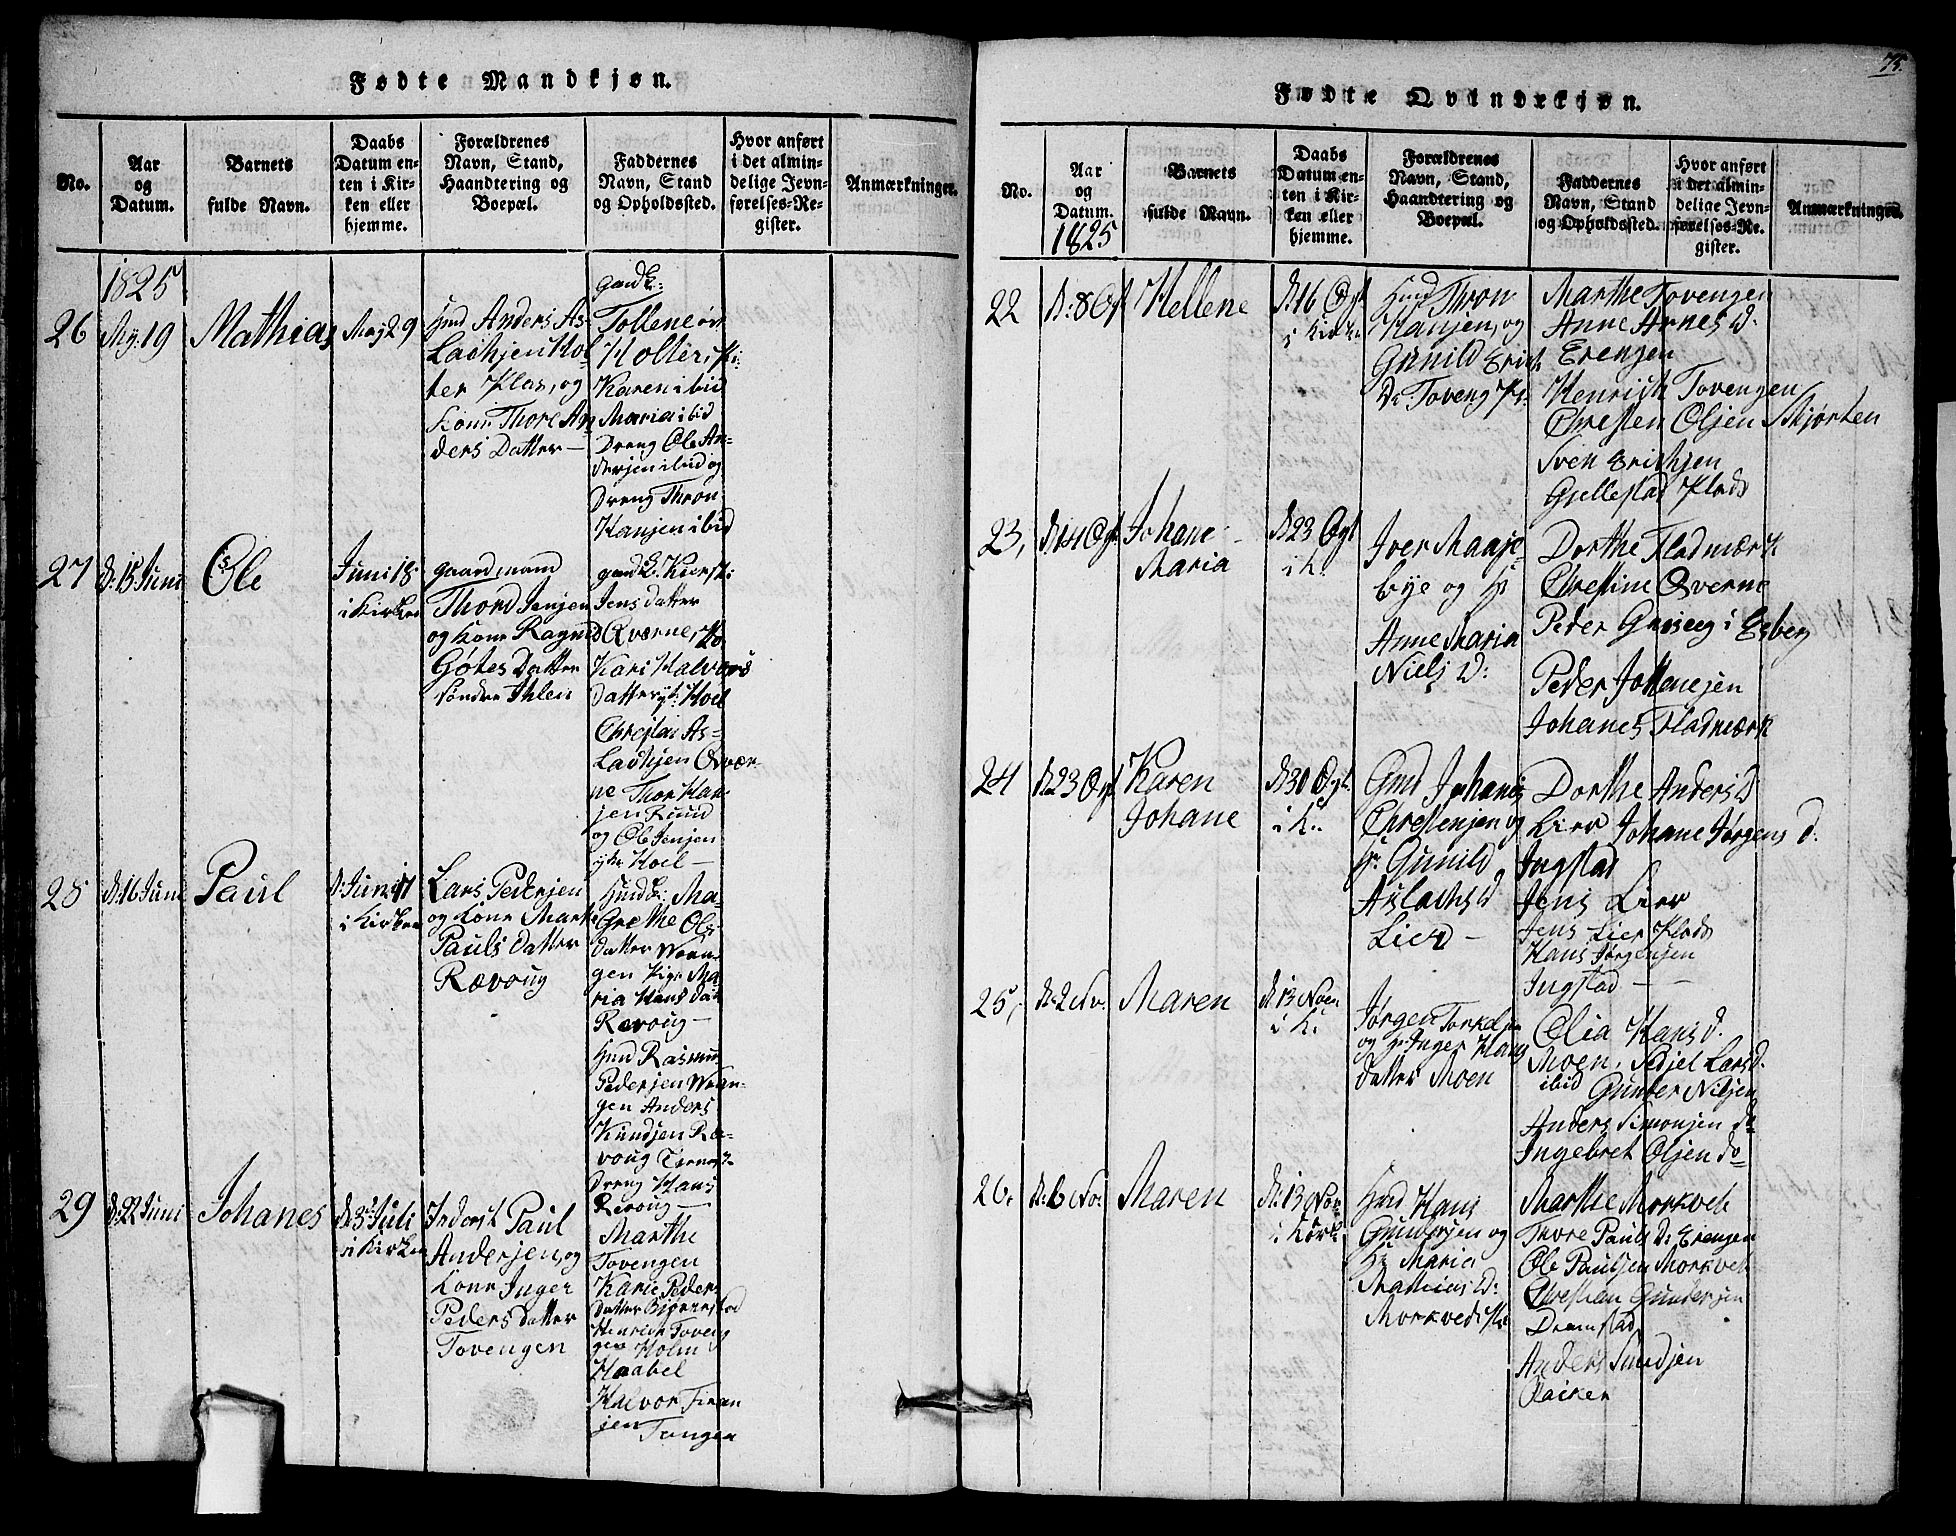 75.
Fødte Mandkjøn.
No.
Aar
og
Datum.
Barnets
fulde Navn.
Daabs
Datum en-
ten i Kir-
ken eller
hjemme.
Forældrenes
Navn, Stand,
Haandtering og
Boepæl.
Faddernes
Navn, Stand
og Opholdssted.
Hvor anført
i det almin-
delige Jevn-
førelses-Re-
gister.
Anmærkninger.
1825
26
My. 19
Mathias
May 29
Hmd Anders As-
Lachsen Hol-
ter Plas, og
Kone Thore An
ders Datter —
Tollene
Holter
Karen ibid
Maria ibid
Dreng Ole An-
dersen ibid og
Dreng Thron
Hansen ibid
27
d: 15 Juni
Ole
Juni 18
i Kirken
gaardmand
Thord Jensen
og Kone Ragnild
Gotes Datter
Søndre Ihlen
Jens datter
Qværnes
Kari Halvors
datter Hoel
Christian As-
Lachsen Qvær
ne Thor Han
sen Ruud
og Ole Jensen
Hoel —
28
d: 16 Juni
Paul
d: Juni 17
i Kirken
Lars Pedersen
og Kone Marte
Pauls datter
Rævoug
Hmd K: Ma-
Grethe Ols
datter Woan-
gen Pige Ma
ria Hans dat
Rævoug —
Hmd Rasmus
Pedersen Woan-
gen Anders
Knudsen Ræ-
voug
Dreng Hans
Rævoug —
29
d: 22 Juni
Johanes
d: 3 Juli
i Kirken
Inderst Paul
Andersen, og
Kone Inger
Peders datter
Tovengen
Marthe
Tovengen
Karie Peders
datter Bjørnstad
Henrich Toven
gen Holm
Haabel
Halvor Finan
sen Tangen
Fødte Qvindekjøn.
No.
Aar
og
Datum.
1825
Barnets
fulde Navn.
Daabs
Datum en-
ten i Kir-
ken eller
hjemme.
Forældrenes
Navn, Stand,
Haandtering og
Boepæl.
Faddernes
Navn, Stand
og Opholdssted.
Hvor anført
i det almin-
delige Jevn-
førelses-Re-
gister.
Anmærkninger.
22
d: 8 Oct
Hellene
d: 16 Oct
i Kirke
Hmd Thron
Hansen, og
Gunild Erichs
D: Toveng Pl:
Marthe Tovengen
Anne Arnes D:
Erengen
Henrich Tovengen
Christen Olsen Skjorten
Sven Erichsen
Gjellestad Plads
23,
d: 14 Oct
Johane
Maria
d 23 Oct
i K:
Iver Maase
bye og H:
Anne Maria
Niels D:
Dorthe Fladmærk
Christine Qverne
Peder Griseg i Egberg
Peder Johanesen
Johanes Fladmærk
24
d: 23 Oct
Karen
Johane
d 30 Oct
i K:
Gmd Johanis
Christensen og
H: Gunild
Aslachs d
Lier —
Dorthe Anders D
Lier Johane Jørgens d:
Ingstad
Jens Lier
Jens Lier Plads
Hans Jørgensen
Ingstad —
25,
d: 2 Nov.
Maren
d: 13 Noem
i K:
Jørgen Torkelsen
og H: Inger Hans
datter Moen
Olia Hans d.
Moen, Sidsel Lars d.
ibid Gunder Nilsen
Anders Simonsen do
Ingebret Olsen do
26.
d: 6 Nov
Maren
d: 13 Nov
i Kirke
Hmd Hans
Gundersen og
H: Maria
Mathias D:
Morkved
Marthe Morkveb
Thore Pauls D: Erengen
Ole Paulsen Morkveb
Christian Gundersen
Dramstad
Anders Smedsen
Raaken